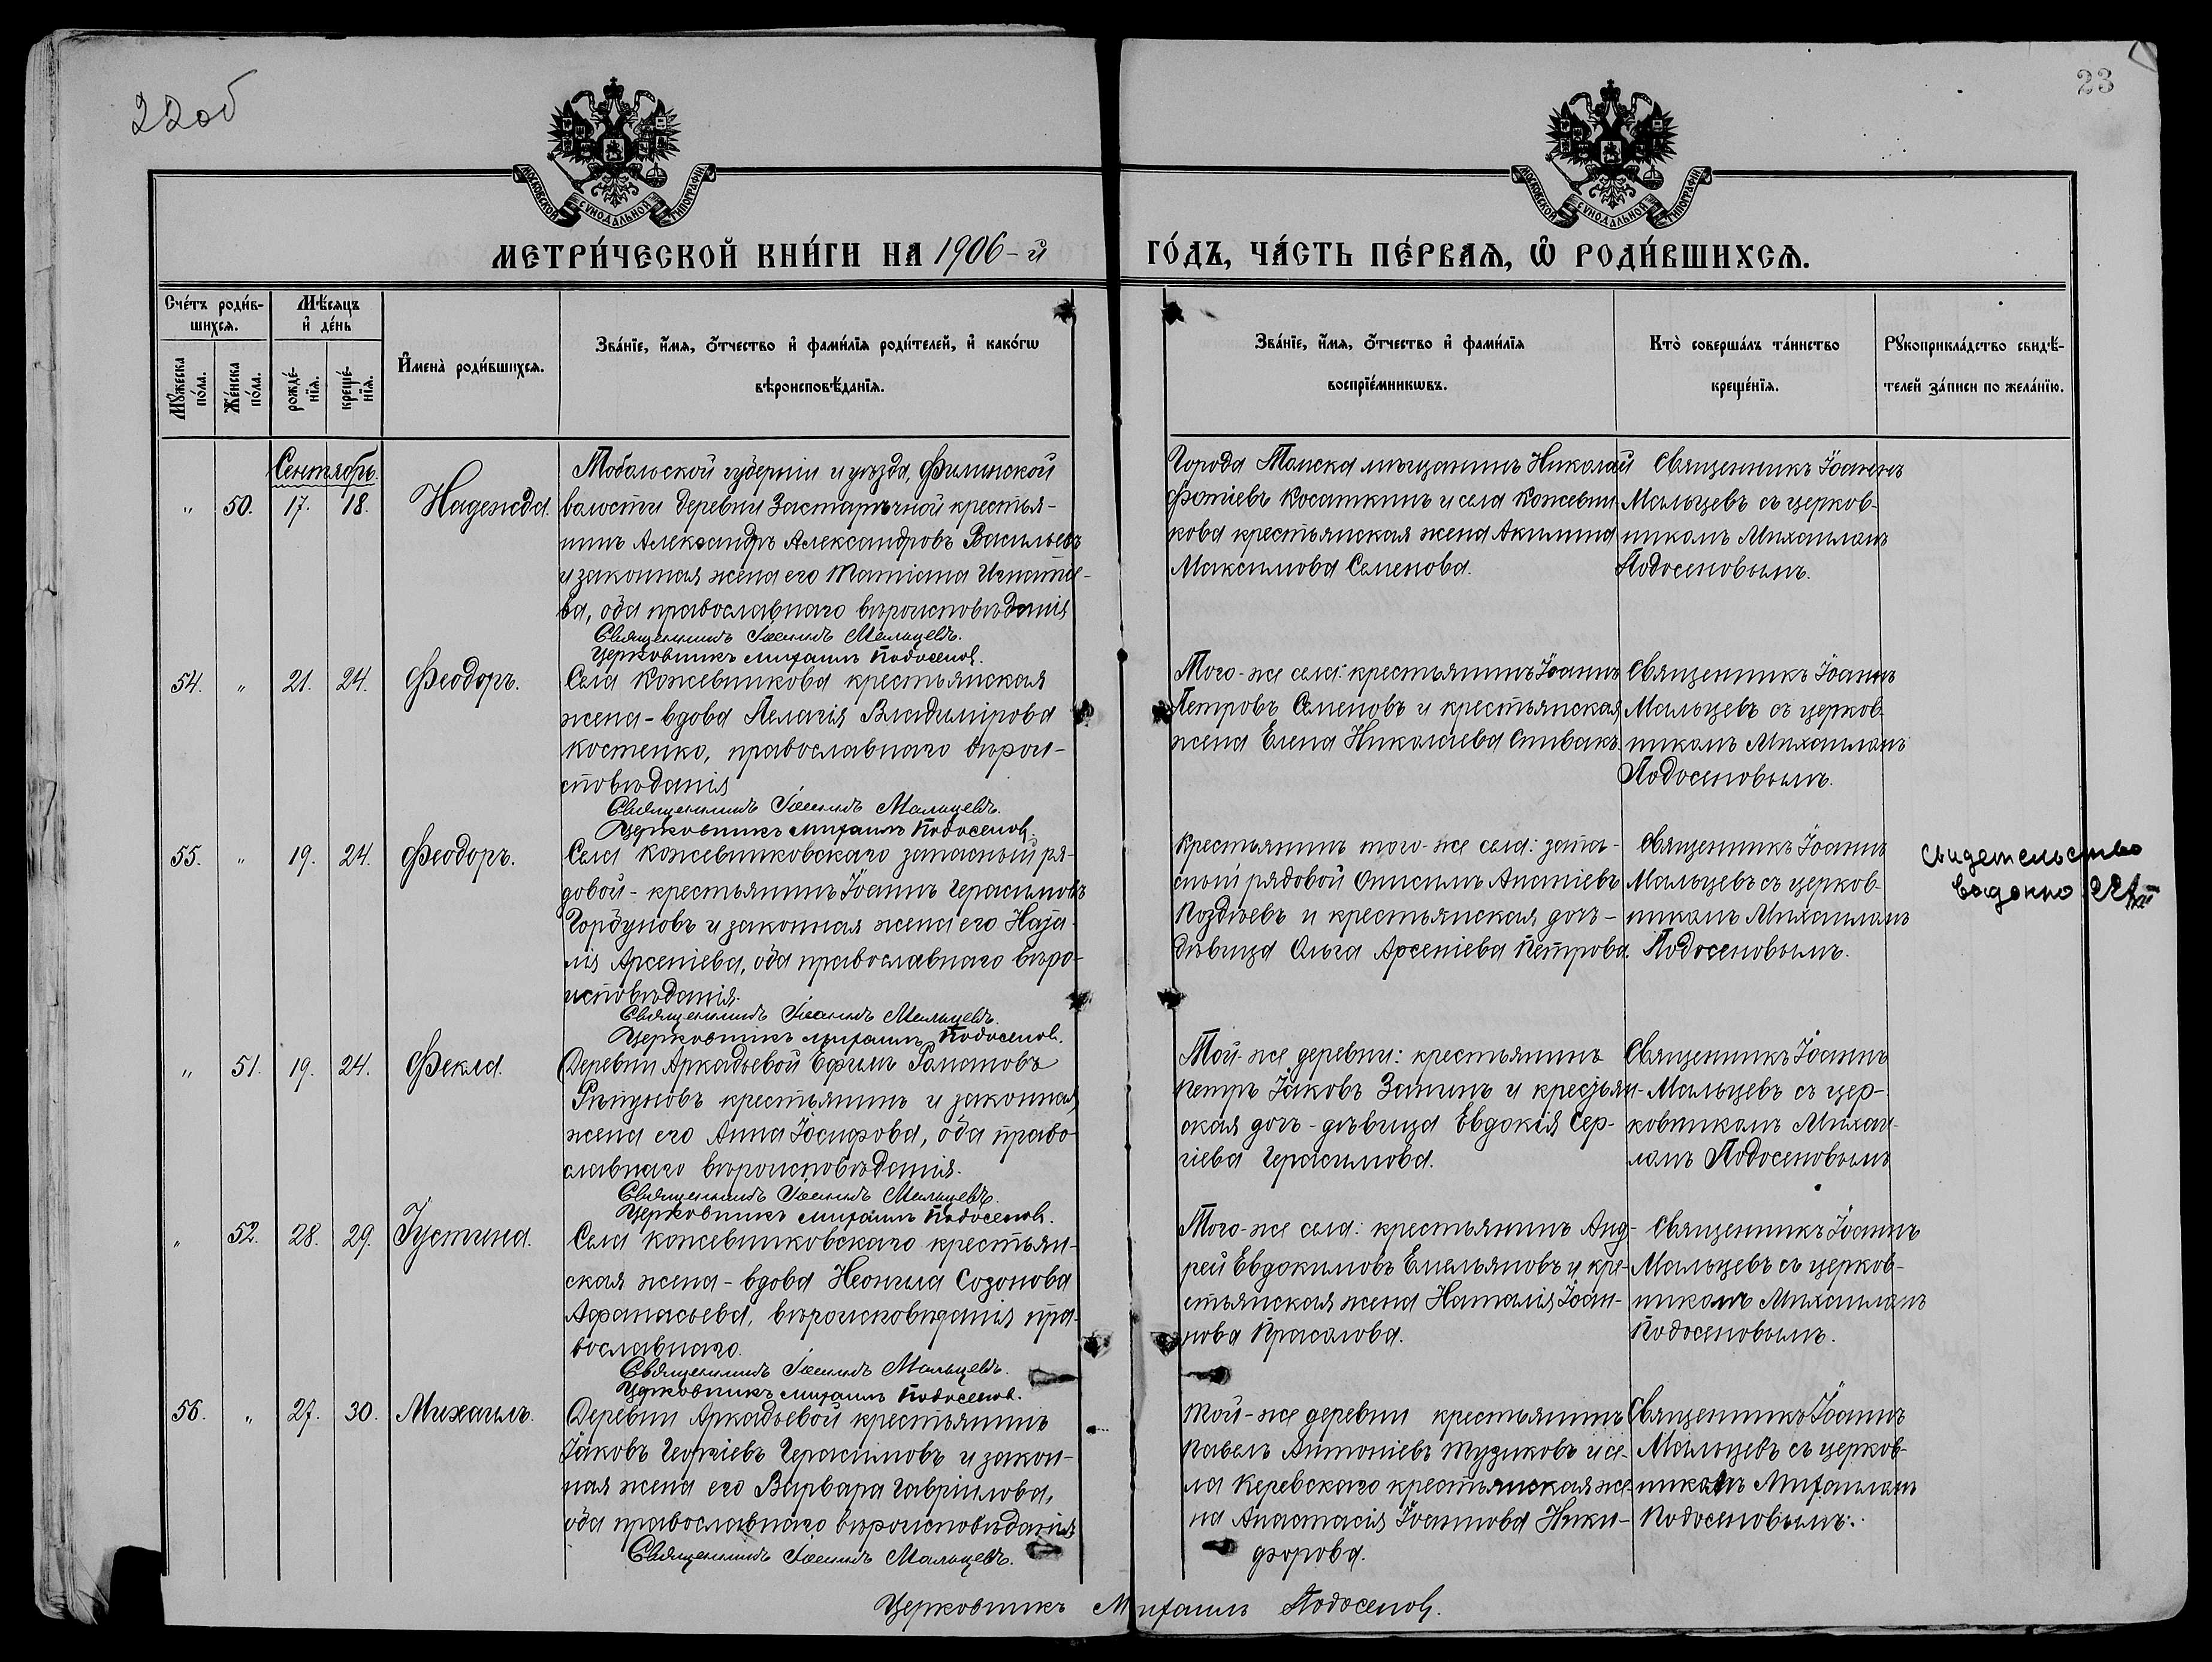 22об
23
МОСКОВСКОЙ СѴНОДАЛЬНОЙ ТИПОГРАФІИ
МОСКОВСКОЙ СѴНОДАЛЬНОЙ ТИПОГРАФІИ
МЕТРИ́ЧЕСКОЙ КНИ́ГИ НА 1906-й ГО́ДЪ, ЧА́СТЬ ПЕ́РВАѦ, Ѡ҆ РОДИ́ВШИХСѦ.
Сче́тъ роди́в-
шихсѧ.
Мꙋ́жеска по́ла.
Же́нска по́ла.
Мѣ́сѧцъ
и҆ де́нь
рожде́-
нїѧ.
креще́-
нїѧ.
И҆мена̀ роди́вшихсѧ.
Зва́нїе, и҆́мѧ, ѻ҆́тчество и҆ фами́лїѧ роди́телей, и҆ како́гѡ
вѣроисповѣ́данїѧ.
Зва́нїе, и҆́мѧ, ѻ҆́тчество и҆ фами́лїѧ
воспрїе́мникѡвъ.
Кто̀ соверша́лъ та́инство
креще́нїѧ.
Рꙋкоприкла́дство свидѣ́-
телей за́писи по жела́нїю.
Сентябрь.
" 50. 17. 18. Надежда.
Тобольской губерніи и уѣзда, Филинской
волости деревни Застарѣчной крестья-
нинъ Александръ Александровъ Васильевъ
и законная жена его Татіана Игнатіе-
ва, оба православнаго вѣроисповѣданія
Священникъ Іоаннъ Мальцевъ.
Церковникъ Михаилъ Подосенов.
Города Томска мѣщанинъ Николай
Фотіевъ Косаткинъ и села Кожевни-
кова крестьянская жена Акилина
Максимова Семенова.
Священникъ Іоаннъ
Мальцевъ съ церков-
никомъ Михаиломъ
Подосеновымъ.
54. " 21. 24. Феодоръ.
Села Кожевникова крестьянская
жена-вдова Пелагія Владимірова
Костенко, православнаго вѣрои-
сповѣданія
Священникъ Іоаннъ Мальцевъ.
Церковникъ Михаилъ Подосенов.
Того-же села: крестьянинъ Іоаннъ
Петровъ Семеновъ и крестьянская
жена Елена Николаева Спивакъ.
Священникъ Іоаннъ
Мальцевъ съ церков-
никомъ Михаиломъ
Подосеновымъ.
55. " 19. 24. Феодоръ.
Села Кожевниковскаго запасный ря-
довой-крестьянинъ Іоаннъ Герасимовъ
Горбуновъ и законная жена его Ната-
лія Арсеніева, оба православнаго вѣро-
исповѣданія.
Священникъ Іоаннъ Мальцевъ.
Церковникъ Михаилъ Подосенов.
Крестьянинъ того-же села: запа-
сной рядовой Онисимъ
Поздѣевъ и крестьянская дочь-
дѣвица Ольга Арсеніева Петрова.
Священникъ Іоаннъ
Мальцевъ съ церков-
никомъ Михаиломъ
Подосеновымъ.
Свидетельство
выдано
" 51. 19. 24. Фекла.
Деревни Аркадьевой Ефимъ Романовъ
Рѣпуновъ крестьянинъ и законная
жена его Анна Іосифова, оба право-
славнаго вѣроисповѣданія.
Священникъ Іоаннъ Мальцевъ.
Церковникъ Михаилъ Подосенов.
Той-же деревни: крестьянинъ
Петръ Іаковъ Зонинъ и крестьян-
ская дочь-дѣвица Евдокія Сер-
гіева Герасимова.
Священникъ Іоаннъ
Мальцевъ съ цер-
ковникомъ Михаи-
ломъ Подосеновымъ
" 52. 28. 29. Іустина.
Села Кожевниковскаго крестьян-
ская жена-вдова Неонила Созонова
Афанасьева, вѣроисповѣданія пра-
вославнаго.
Священникъ Іоаннъ Мальцевъ.
Церковникъ Михаилъ Подосенов.
Того-же села: крестьянинъ Анд-
рей Евдокимовъ Емельяновъ и кре-
стьянская жена Наталія Іоан-
нова Прасолова.
Священникъ Іоаннъ
Мальцевъ съ церков-
никомъ Михаиломъ
Подосеновымъ.
56. " 27. 30. Михаилъ.
Деревни Аркадьевой крестьянинъ
Іаковъ Георгіевъ Герасимовъ и закон-
ная жена его Варвара Гавріилова,
оба православнаго вѣроисповѣданія
Священникъ Іоаннъ Мальцевъ.
Той-же деревни крестьянинъ
Павелъ Антоніевъ Тузиковъ и се-
ла Керевскаго крестьянская же-
на Анастасія Іоаннова Ники-
форова.
Священникъ Іоаннъ
Мальцевъ съ церков-
никомъ Михаиломъ
Подосеновымъ.
Церковникъ Михаилъ Подосенов.